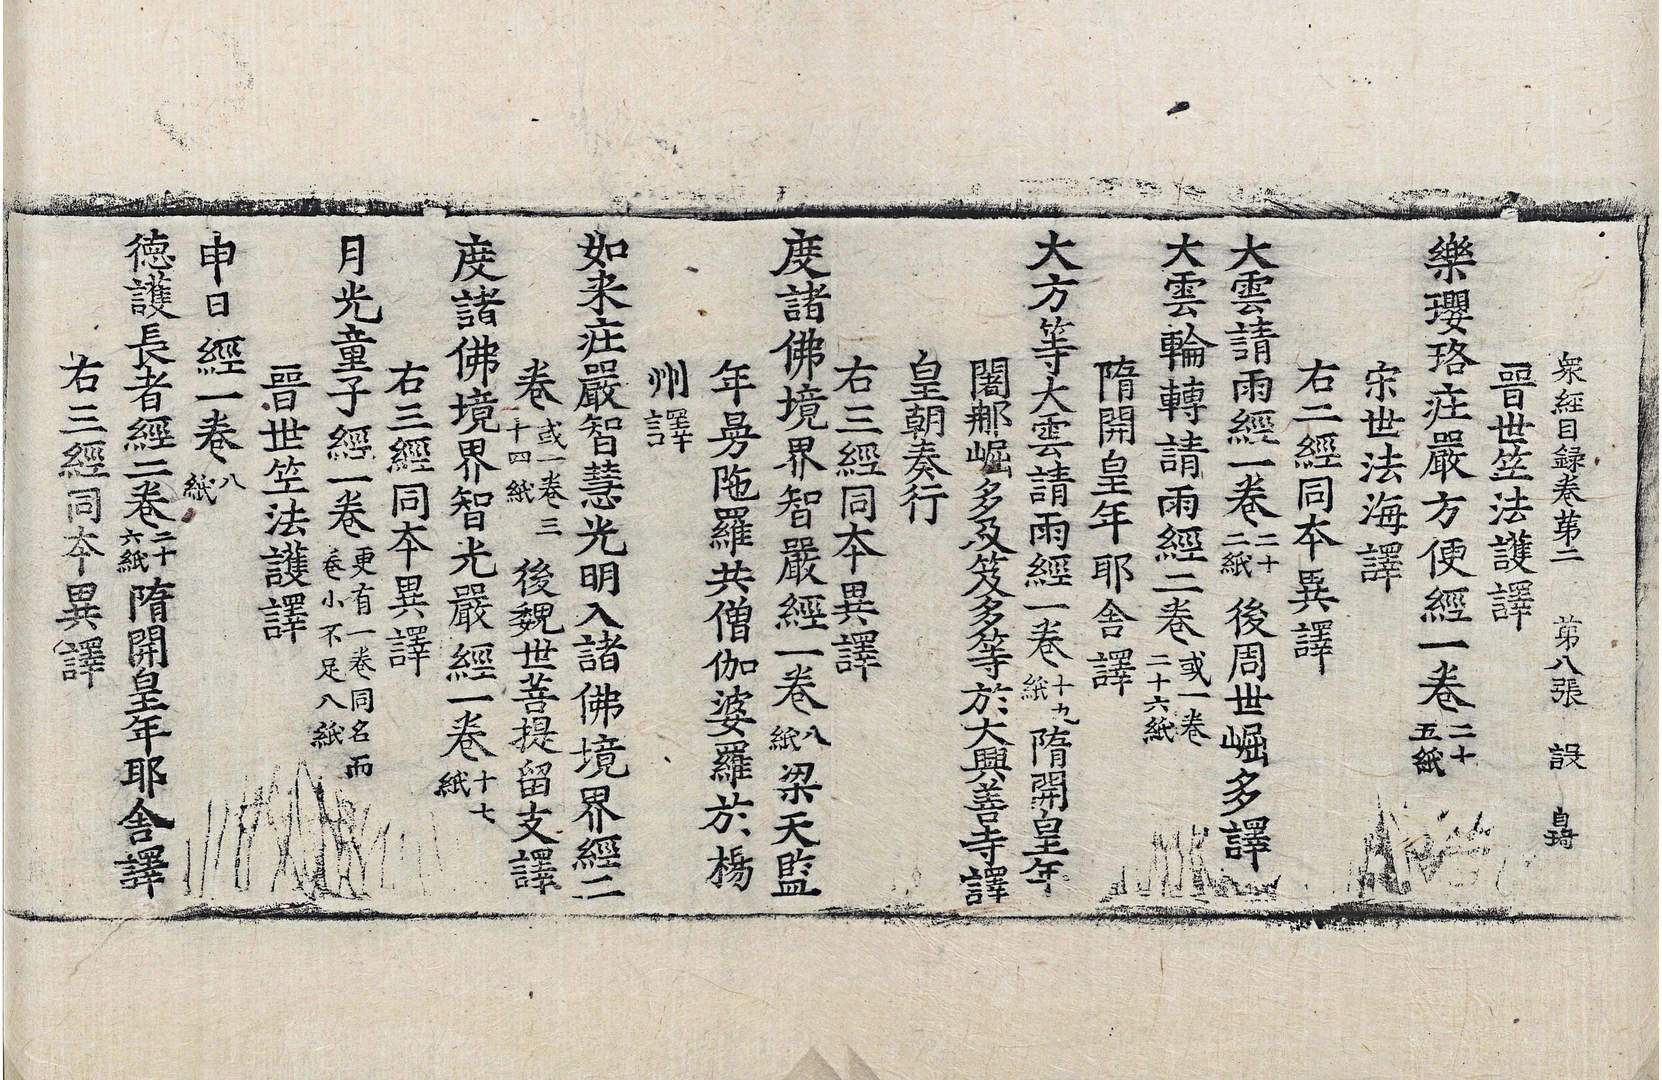 衆經目録卷第二　第八張　設　㻢
晉世笁法護譯
樂瓔珞庄嚴方便經一卷二十五紙
宋世法海譯
右二經同夲異譯
大雲請雨經一卷二十二紙　後周世崛多譯
大雲輪轉請雨經二卷或一卷二十六紙
隋開皇年耶舍譯
大方等大雲請雨經一卷十九紙　隋開皇年
闍那崛多及笈多等於大興善寺譯
皇朝奏行
右三經同夲異譯
度諸佛境界智嚴經一卷八紙　梁天監
年㬅陁羅共僧伽婆羅於楊
州譯
如来庄嚴智慧光明入諸佛境界經二
卷或一卷三十四紙　後魏世菩提留支譯
度諸佛境界智光嚴經一卷十七紙
右三經同夲異譯
月光童子經一卷更有一卷同名而卷小不足八紙
晉世笁法護譯
申日經一卷八紙
德護長者經二卷二十六紙　隋開皇年耶舍譯
右三經同夲異譯